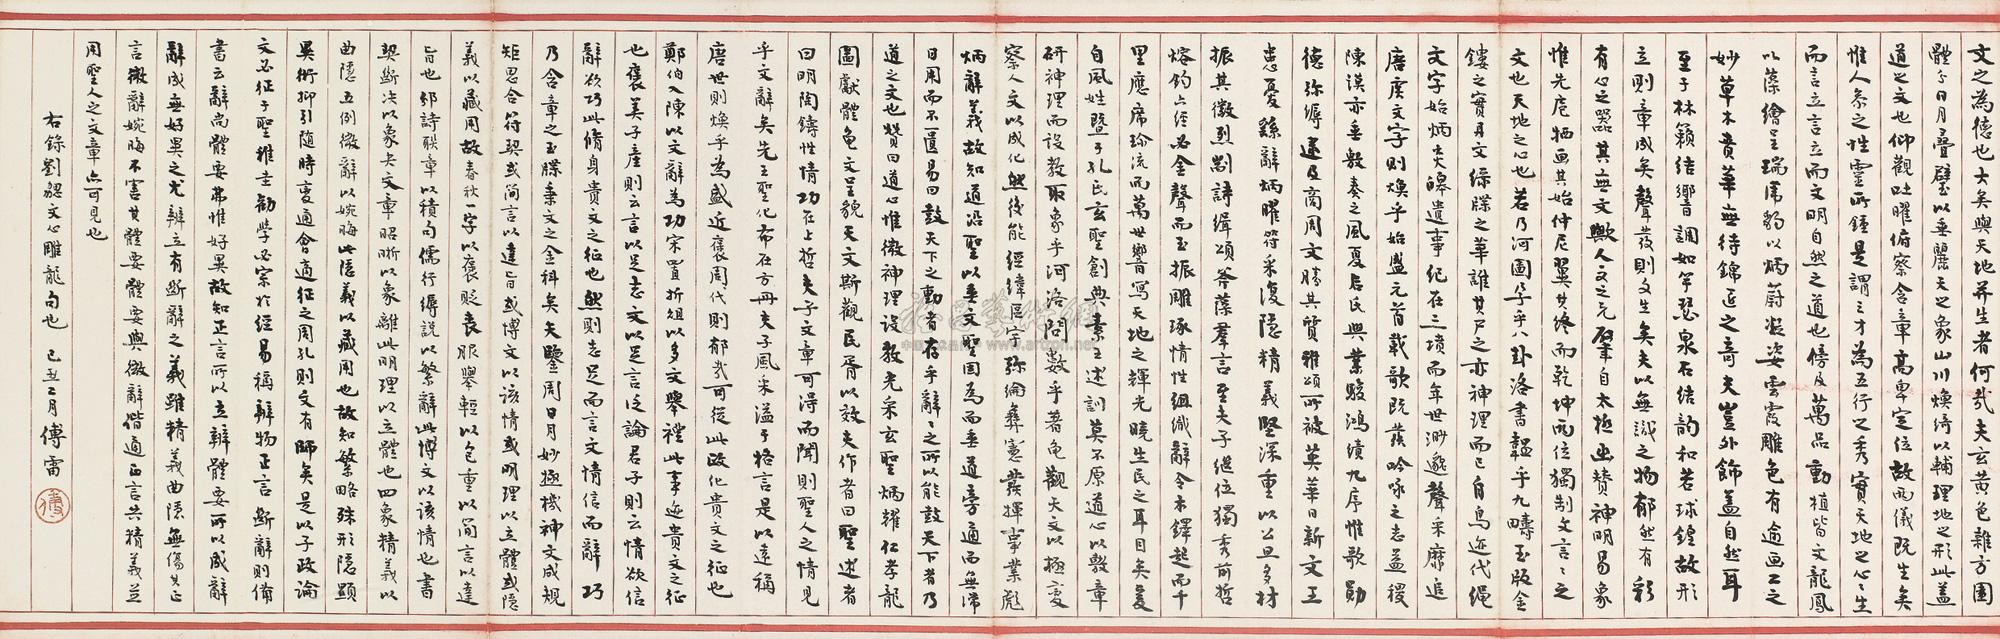 文之為德也大矣與天地并生者何哉夫玄黃色雜方圓
體分日月疊璧以垂麗天之象山川煥綺以輔理地之形此蓋
道之文也仰觀吐曜俯察含章高卑定位故兩儀既生矣
惟人參之性靈所鍾是謂三才為五行之秀實天地之心々生
而言立言立而文明自然之道也傍及萬品動植皆文龍鳳
以藻繪呈瑞虎豹以炳蔚凝姿雲霞雕色有逾画工之
妙草木賁華無待錦匠之奇夫豈外飾蓋自然耳
至于林籟結響調如竽瑟泉石結韵和若球鍠故形
立則章成矣聲發則文生矣夫以無識之物郁然有彩
有心之器其無文歟人文之元肇自太極幽贊神明易象
惟先庖犧画其始仲尼翼其終而乾坤兩位獨制文言々之
文也天地之心也若乃河圖孕乎八卦洛書韞乎九疇玉版金
鏤之實丹文綠牒之華誰其尸之亦神理而已自鳥迹代繩
文字始炳炎皞遺事紀在三墳而年世渺邈聲采靡追
唐虞文字則煥乎始盛元首載歌既發吟咏之志益稷
陳謨亦垂敷奏之風夏后氏興業峻鴻績九序惟歌勛
德彌縟逮及商周文勝其質雅頌所被英華日新文王
患憂繇辭炳曜符采復隱精義堅深重以公旦多材
振其徽烈剬詩緝頌斧藻羣言至夫子繼位獨秀前哲
熔鈞六經必金聲而玉振雕琢情性組織辭令木鐸起而千
里應席珍流而萬世響寫天地之輝光曉生民之耳目矣爰
自風姓暨于孔氏玄聖創典素王述訓莫不原道心以敷章
研神理而設教取象乎河洛問數乎蓍龜觀天文以極變
察人文以成化然後能經緯區宇彌綸彝憲發揮事業彪
炳辭義故知道沿聖以垂文聖因為而垂道旁通而無滯
日用而不匱易曰鼓天下之動者存乎辭々之所以能鼓天下者乃
道之文也贊曰道心惟微神理設教光采玄聖炳耀仁孝龍
圖獻體龜文呈貌天文斯觀民胥以效夫作者曰聖述者
曰明陶鑄性情功在上哲夫子文章可得而聞則聖人之情見
乎文辭矣先王聖化布在方冊夫子風采溢于格言是以遠稱
唐世則煥乎為盛近褒周代則郁哉可從此政化貴文之征也
鄭伯入陳以文辭為功宋置折俎以多文舉禮此事迹貴文之征
也褒美子產則云言以足志文以足言泛論君子則云情欲信
辭欲巧此脩身貴文之征也然則志足而言文情信而辭巧
乃含章之玉牒秉文之金科矣夫鑒周日月妙極機神文成規
矩思合符契或簡言以達旨或博文以該情或明理以立體或隱
義以藏用故春秋一字以褒貶喪服舉輕以包重以簡言以達
旨也邠詩聯章以積句儒行縟説以繁辭此博文以該情也書
契斷决以象夬文章昭晰以象離此明理以立體也四象精義以
曲隱五例微辭以婉晦此隱義以藏用也故知繁略殊形隱顯
異術抑引隨時變通會適征之周孔則文有師矣是以子政論
文必征于聖稚圭勸學必宗於經易稱辨物正言斷辭則備
書云辭尚體要弗惟好異故知正言所以立辨體要所以成辭
辭成無好異之尤辨立有斷辭之義雖精義曲隱無傷其正
言微辭婉晦不害其體要體要與微辭偕通正言共精義並
用聖人之文章亦可見也
右錄劉勰文心雕龍句也 己丑二月傅雷